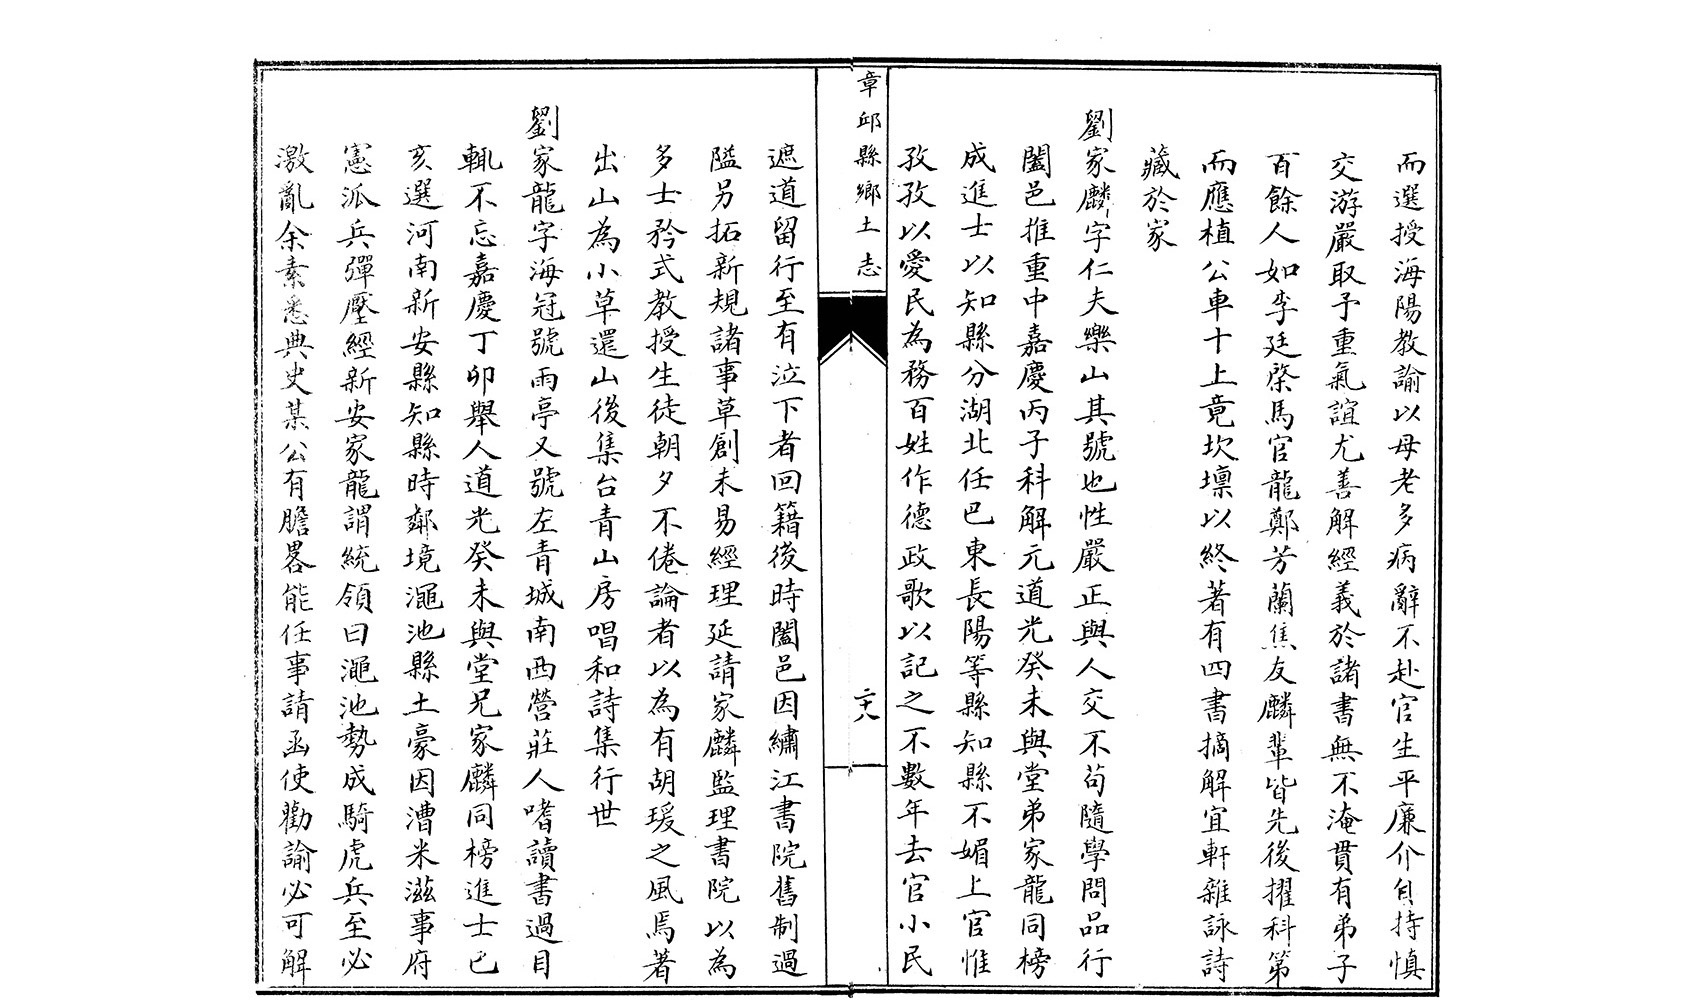 而選授海陽教諭以母老多病辭不赴官生平廉介自持慎
交游嚴取予重氣誼尤善解經義於諸書無不淹貫有弟子
百餘人如李廷棨馬官龍鄭芳蘭焦友麟輩皆先後擢科第
而應植公車十上竟坎壈以終著有四書摘解宜軒雜詠詩
藏於家
劉家麟字仁夫樂山其號也性嚴正與人交不苟隨學問品行
闔邑推重中嘉慶丙子科解元道光癸未與堂弟家龍同榜
成進士以知縣分湖北任巴東長陽等縣知縣不媚上官惟
孜孜以愛民為務百姓作德政歌以記之不數年去官小民
章邱縣鄉土志
二十八
遮道留行至有泣下者回籍後時闔邑因繡江書院舊制過
隘另拓新規諸事草創未易經理延請家麟監理書院以為
多士矜式教授生徒朝夕不倦論者以為有胡瑗之風焉著
出山為小草還山後集台青山房唱和詩集行世
劉家龍字海冠號雨亭又號左青城南西營莊人嗜讀書過目
輒不忘嘉慶丁卯舉人道光癸未與堂兄家麟同榜進士己
亥選河南新安縣知縣時鄰境澠池縣土豪因漕米滋事府
憲派兵彈壓經新安家龍謂統領曰澠池勢成騎虎兵至必
激亂余素悉典史某公有膽畧能任事請函使勸諭必可解